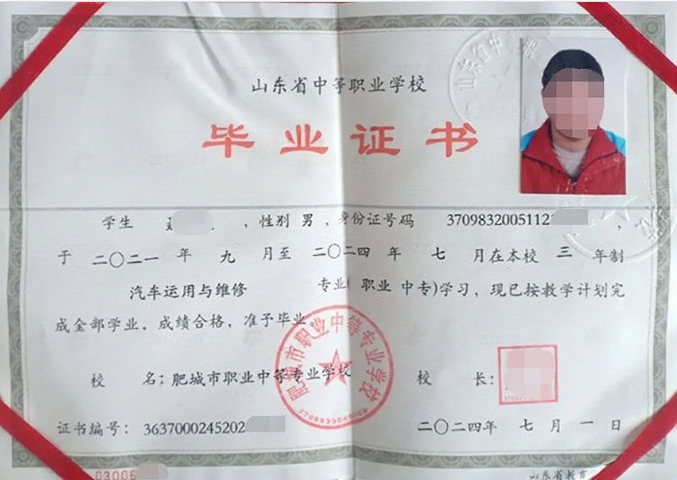 山东省中等职业学校
毕业证书
学生 ，性别 男 ，身份证号码 3709832005112 ，
于 二〇二一 年 九 月至 二〇二四 年 七 月在本校 三 年制
汽车运用与维修 专业( 职业 中专)学习，现已按教学计划完
成全部学业，成绩合格，准予毕业。
肥城市职业中等专业学校
校 名：肥城市职业中等专业学校 校 长：
证书编号：3637000245202 二〇二四年 七 月 一 日
03006 山东省教育